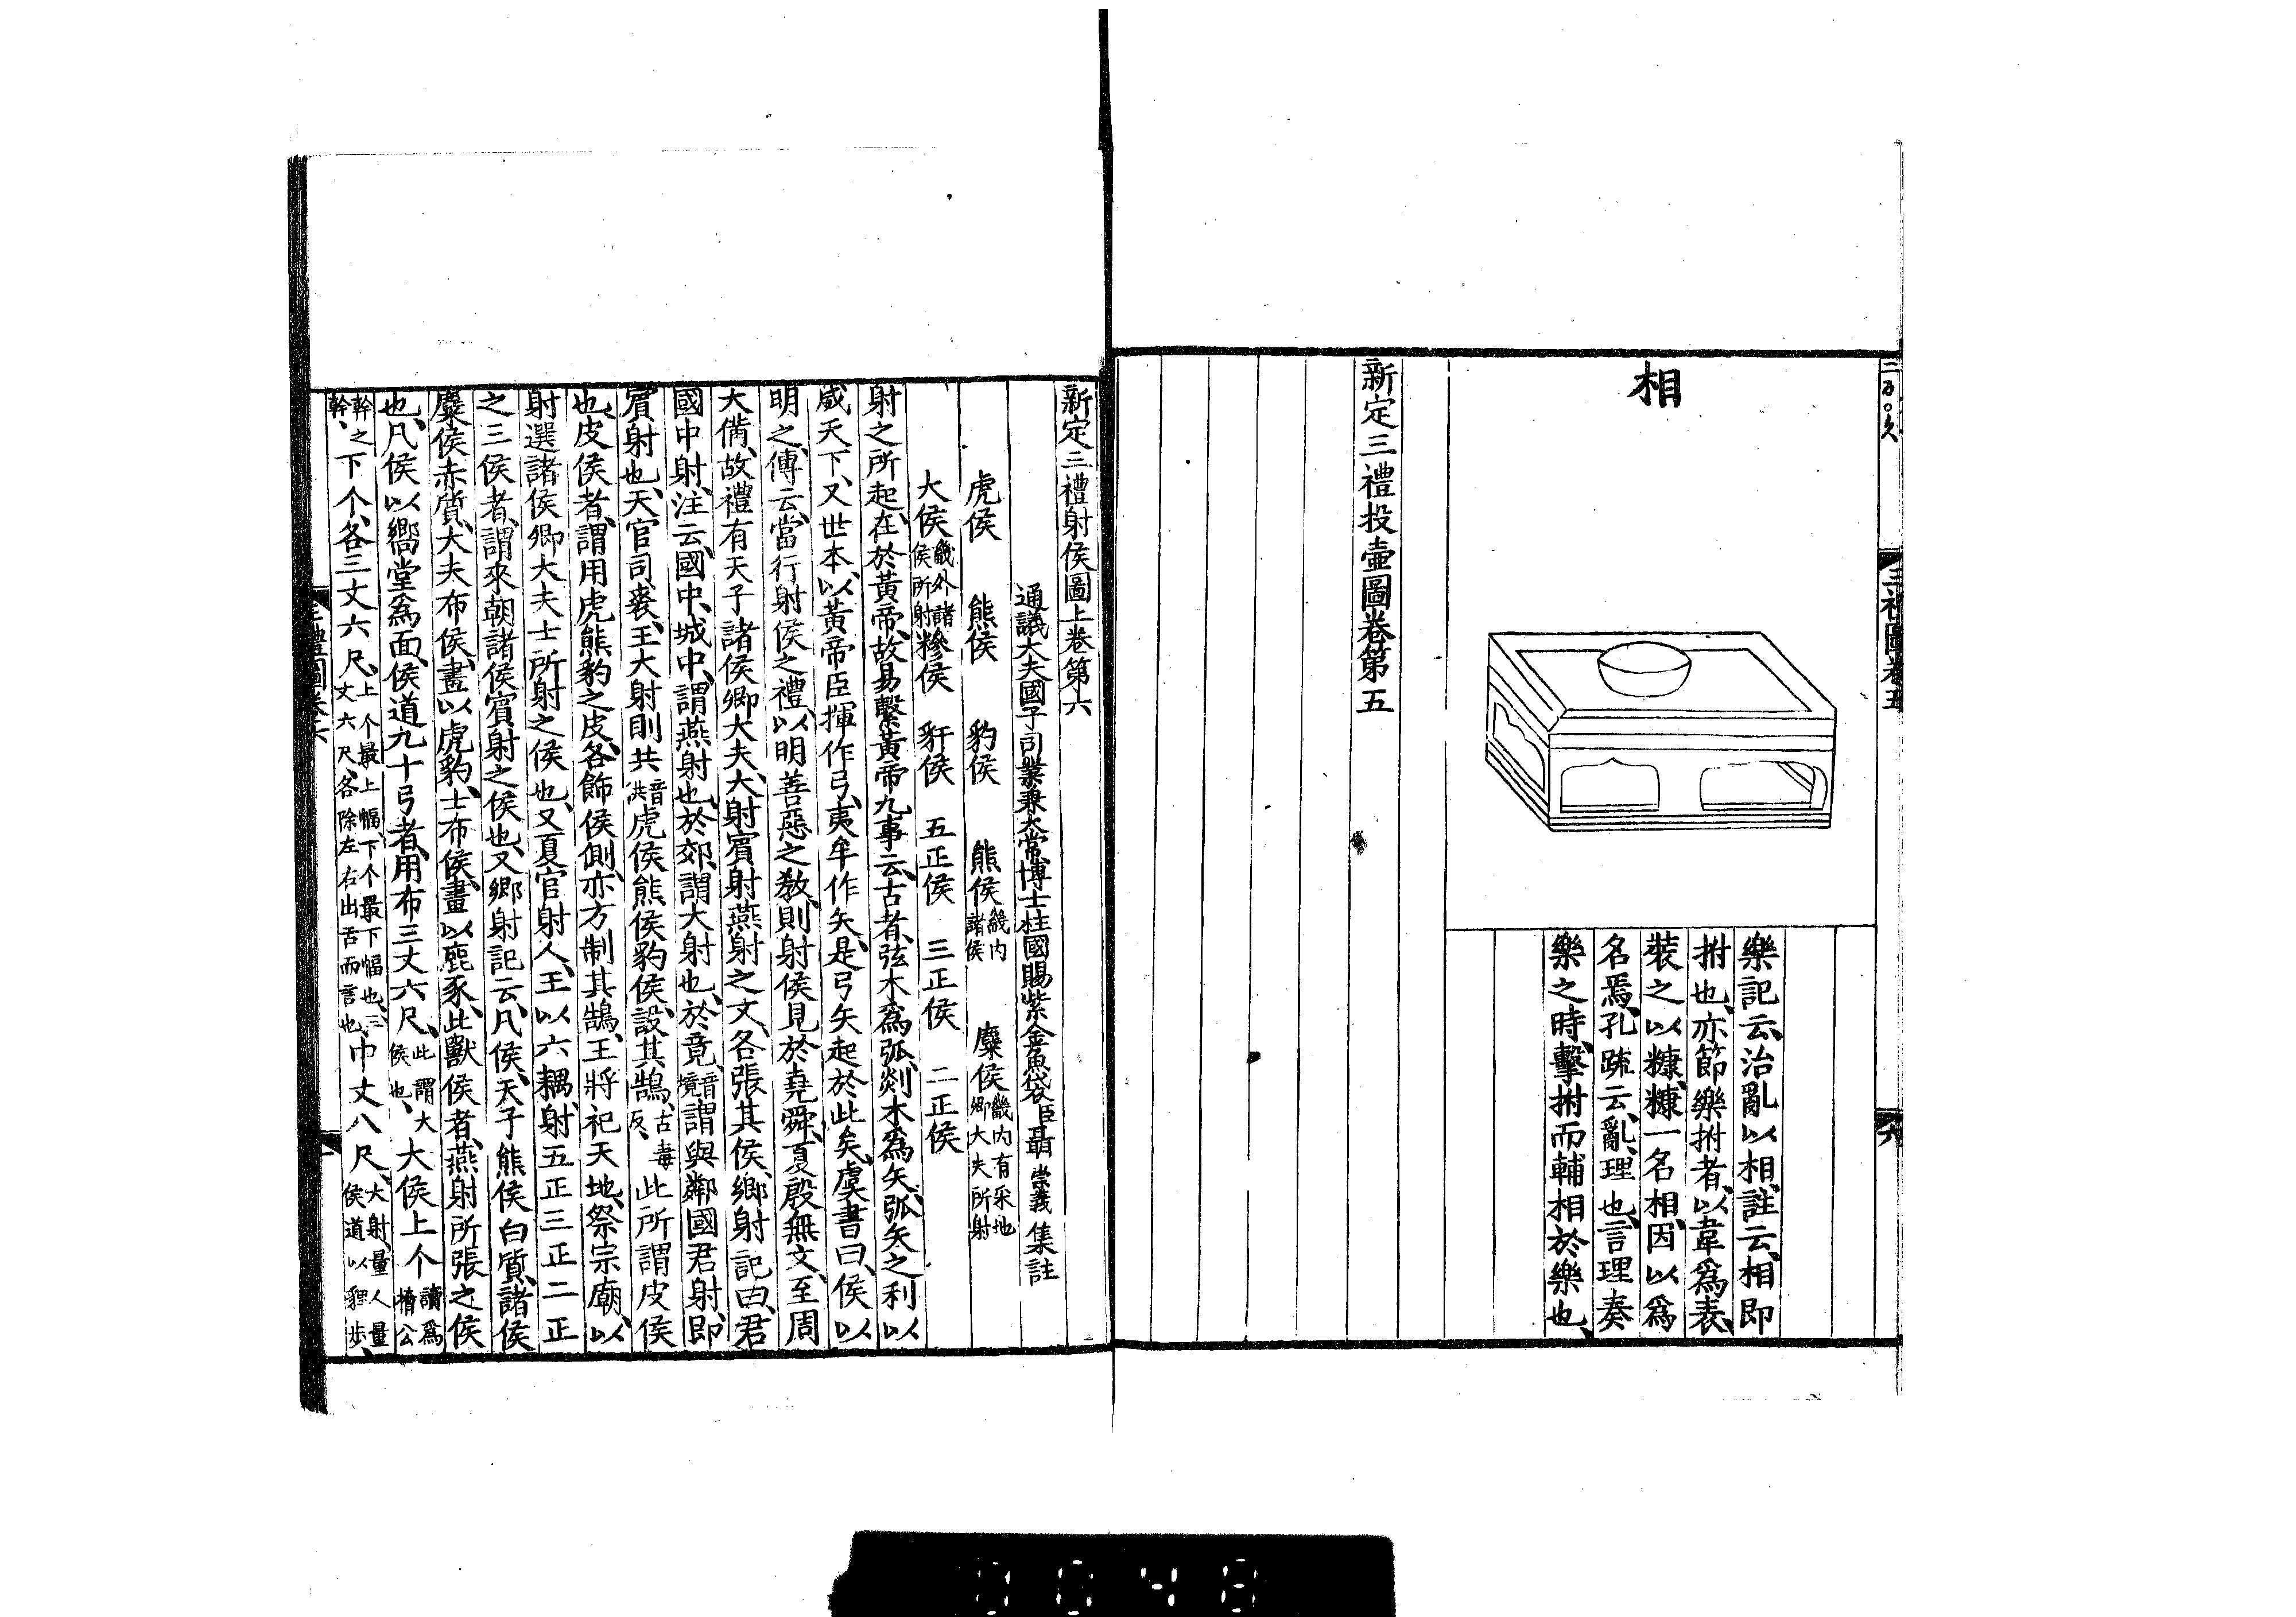 相
樂記云、治亂以相、註云、相即
拊也、亦節樂拊者、以韋爲表、
裝之以糠、糠一名相、因以爲
名焉、孔疏云、亂、理也、言理奏
樂之時、擊拊而輔相於樂也、
新定三禮投壺圖卷第五
新定三禮射侯圖上卷第六
通議大夫國子司業兼太常博士柱國賜紫金魚袋臣聶崇義集註
虎侯 熊侯 豹侯 熊侯畿内諸侯 麋侯畿内有采地卿大夫所射
大侯畿外諸侯所射 糝侯 豻侯 五正侯 三正侯 二正侯
射之所起、在於黃帝、故易繫黃帝九事云、古者、弦木爲弧、剡木爲矢、弧矢之利以
威天下、又世本、以黃帝臣揮作弓、夷牟作矢、是弓矢起於此矣、虞書曰、侯以
明之、傳云、當行射侯之禮、以明善惡之敎、則射侯見於堯舜、夏殷無文、至周
大備、故禮有天子諸侯卿大夫、大射賓射燕射之文、各張其侯、鄉射記曰、君
國中射、注云、國中、城中、謂燕射也、於郊、謂大射也、於竟、音境謂與鄰國君射、即
賓射也、天官司裘、王大射則共音洪虎侯熊侯豹侯、設其鵠、古毒反、此所謂皮侯
也、皮侯者、謂用虎熊豹之皮、各飾侯側、亦方制其鵠、王將祀天地、祭宗廟、以
射選諸侯卿大夫士所射之侯也、又夏官射人、王以六耦、射五正三正二正
之三侯者、謂來朝諸侯賓射之侯也、又鄉射記云、凡侯、天子熊侯白質、諸侯
麋侯赤質、大夫布侯、畫以虎豹、士布侯、畫以鹿豕、此獸侯者、燕射所張之侯
也、凡侯以嚮堂爲面、侯道九十弓者、用布三丈六尺、此謂大侯也、大侯上个讀爲㯡公
幹、幹之下个、各三丈六尺、上个最上幅、下个最下幅也、三丈六尺、各除左右出舌而言也、中丈八尺、大射、量人量侯道以貍步、